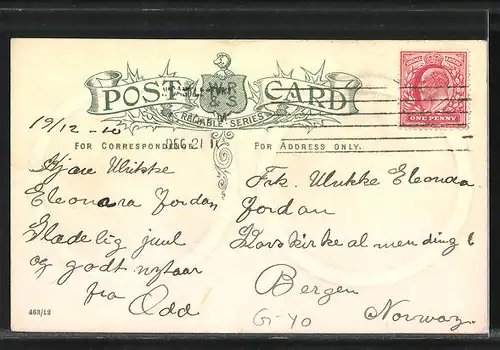 POST CARD
W.R & S
RELIABLE SERIES
ONE PENNY
DEC 21 10
FOR CORRESPONDENCE.
FOR ADDRESS ONLY.
19/12 - 10
Kjære Ulrikke
Eleonora Jordan
Glædelig juul
og godt nytaar
fra
Odd
Frk. Ulrikke Eleonora
Jordan
Korskirkealmending 6
Bergen
Norway
Gi-40
463/12